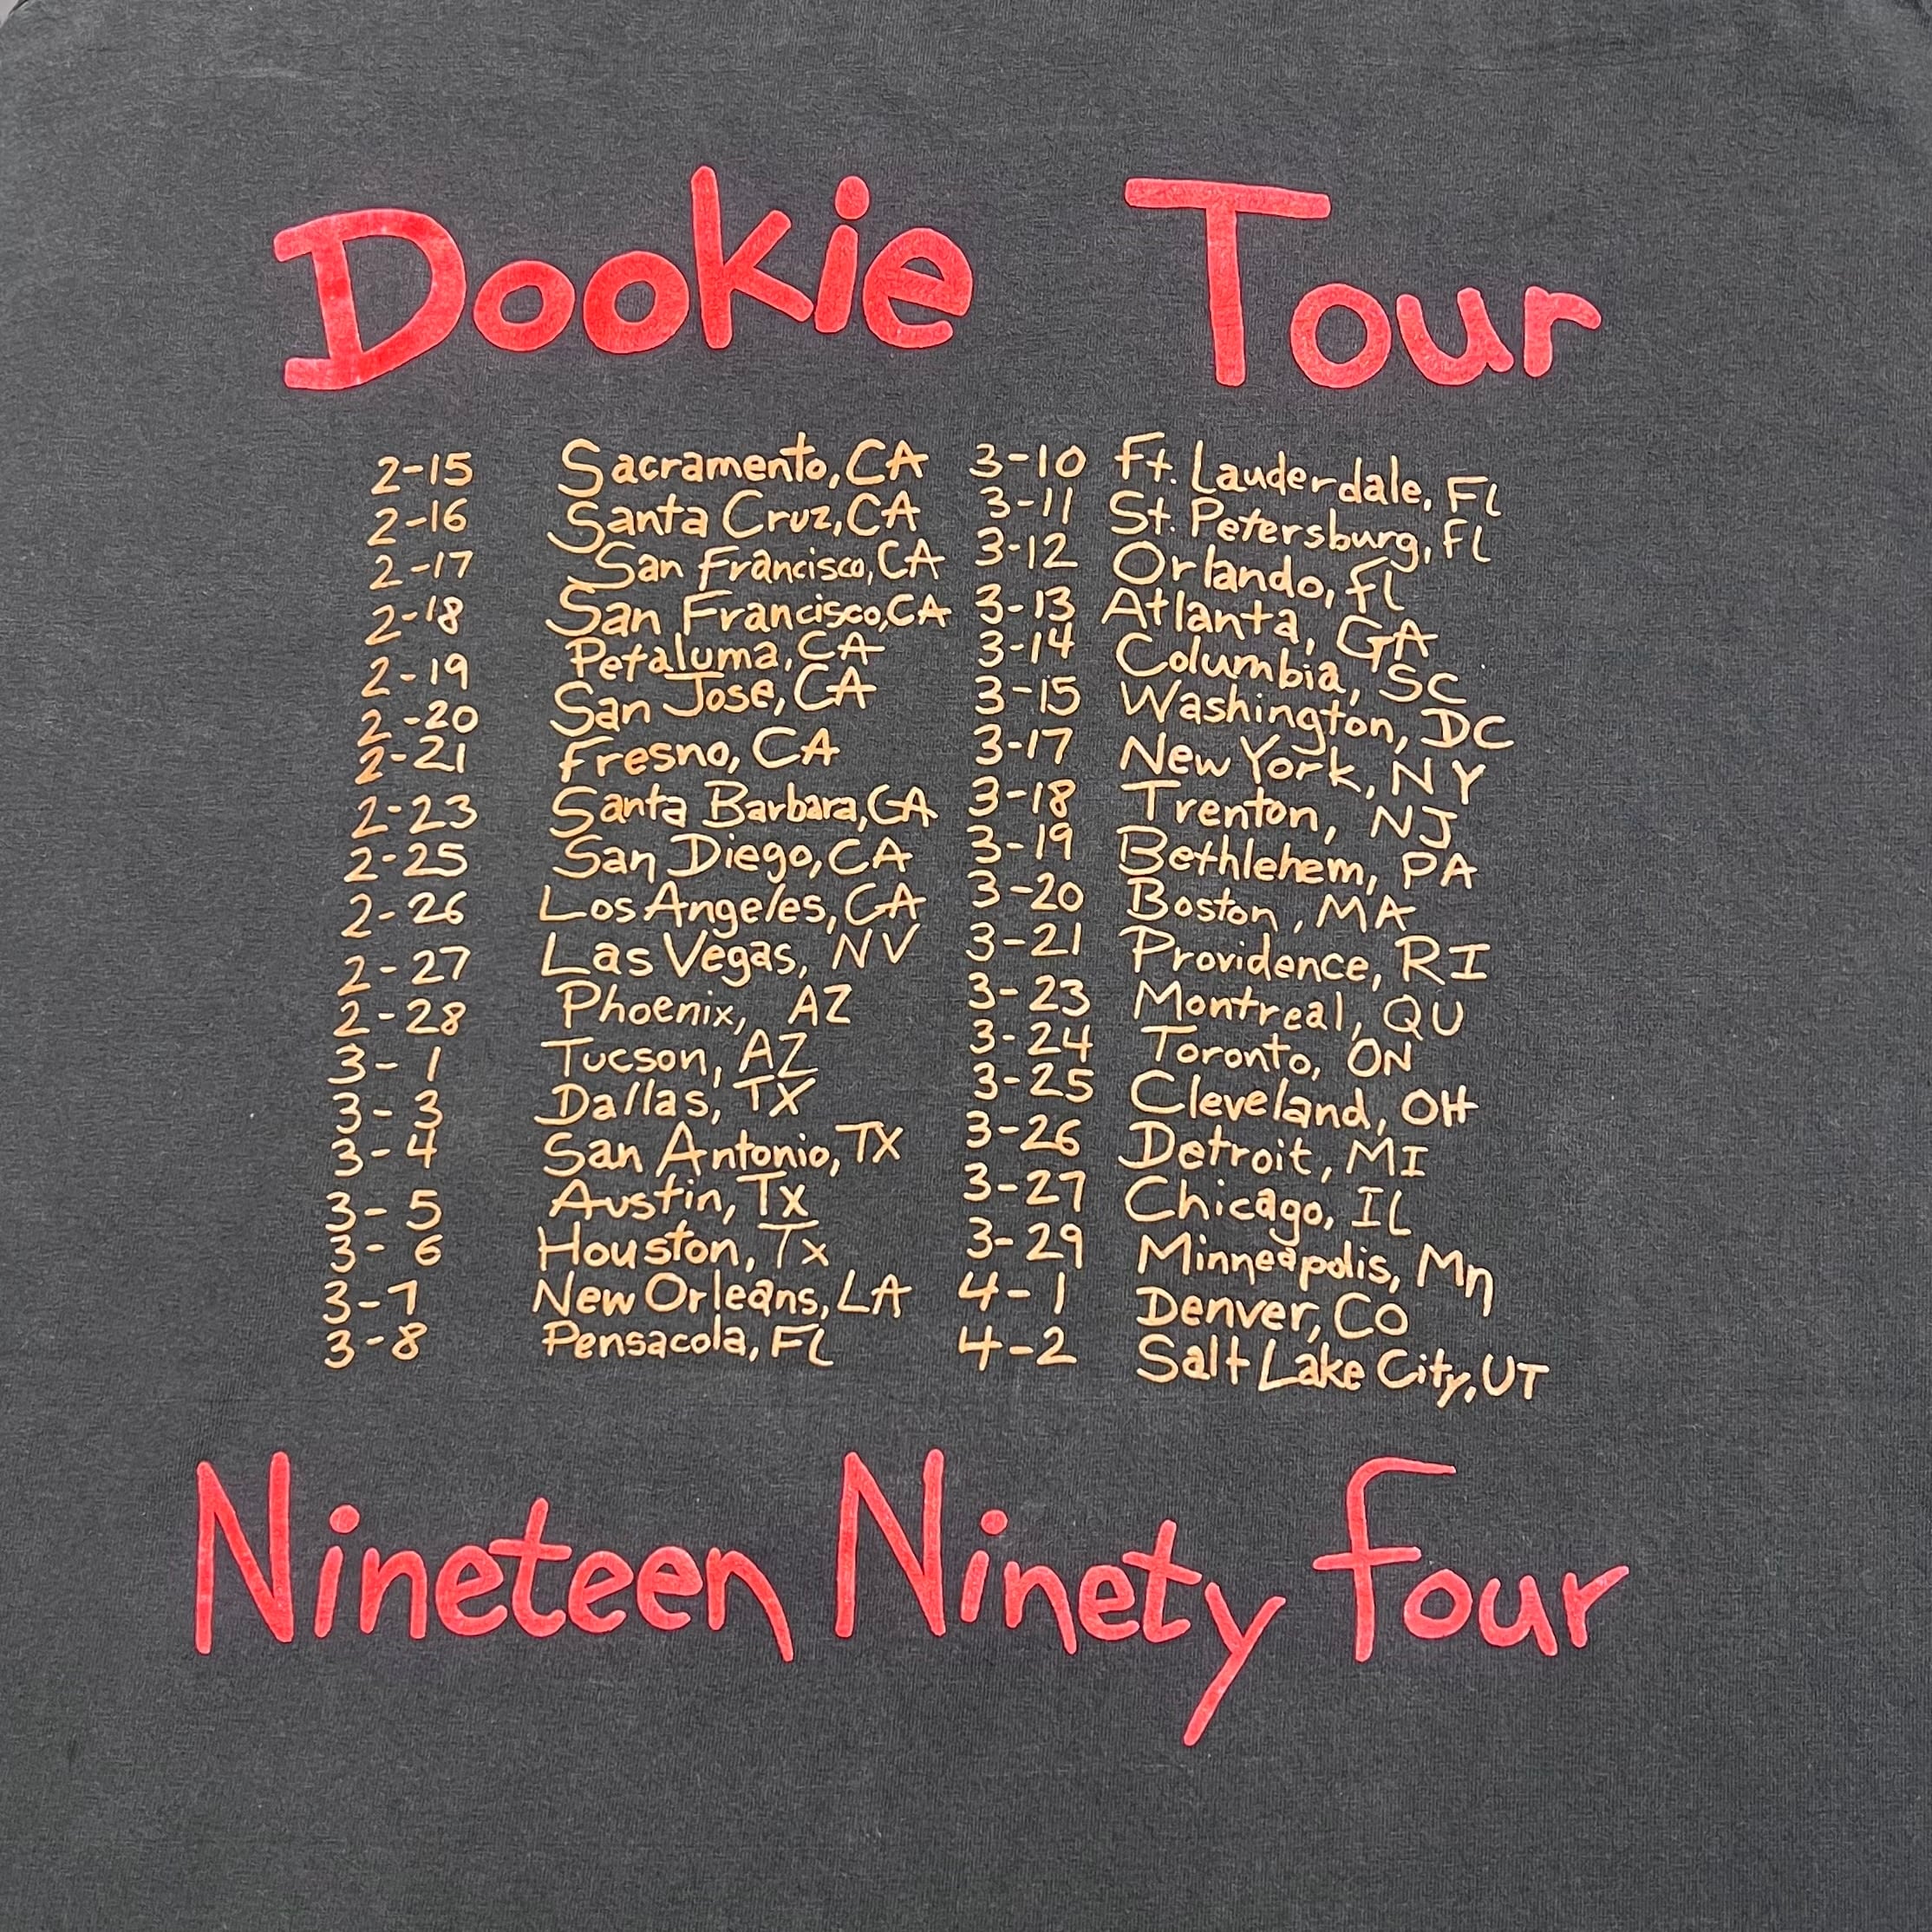 Dookie Tour
2-15 Sacramento, CA
2-16 Santa Cruz, CA
2-17 San Francisco, CA
2-18 San Francisco, CA
2-19 Petaluma, CA
2-20 San Jose, CA
2-21 Fresno, CA
2-23 Santa Barbara, CA
2-25 San Diego, CA
2-26 Los Angeles, CA
2-27 Las Vegas, NV
2-28 Phoenix, AZ
3-1 Tucson, AZ
3-3 Dallas, TX
3-4 San Antonio, TX
3-5 Austin, Tx
3-6 Houston, Tx
3-7 New Orleans, LA
3-8 Pensacola, FL
3-10 Ft. Lauderdale, Fl
3-11 St. Petersburg, Fl
3-12 Orlando, fl
3-13 Atlanta, GA
3-14 Columbia, SC
3-15 Washington, DC
3-17 New York, NY
3-18 Trenton, NJ
3-19 Bethlehem, PA
3-20 Boston, MA
3-21 Providence, RI
3-23 Montreal, QU
3-24 Toronto, ON
3-25 Cleveland, OH
3-26 Detroit, MI
3-27 Chicago, IL
3-29 Minneapolis, Mn
4-1 Denver, CO
4-2 Salt Lake City, UT
Nineteen Ninety four